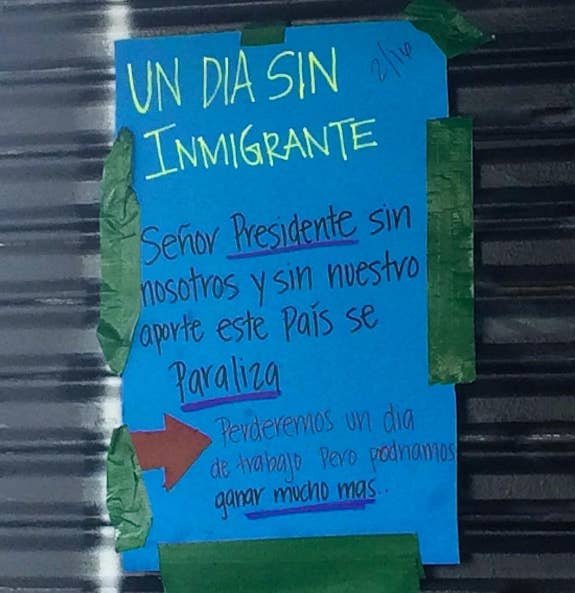 UN DIA SIN
2/16
INMIGRANTE
Señor Presidente sin
nosotros y sin nuestro
aporte este País se
Paraliza
Perderemos un dia
de trabajo Pero podriamos
ganar mucho mas..